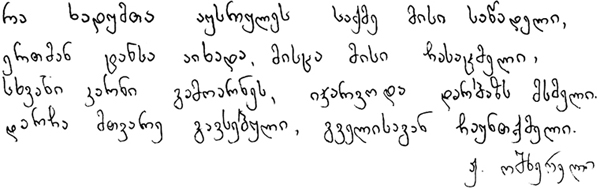 რა ხადუმთა აუსრულეს საქმე მისი საწადელი,
ერთმან ტანსა აიხადა, მისცა მისი ჩასაცმელი,
სხვანი კარნი გამოარნეს, იჯარვოდა დარბაზს მსმელი.
დარჩა მთვარე გავსებული, გველისაგან ჩაუნთქმელი.